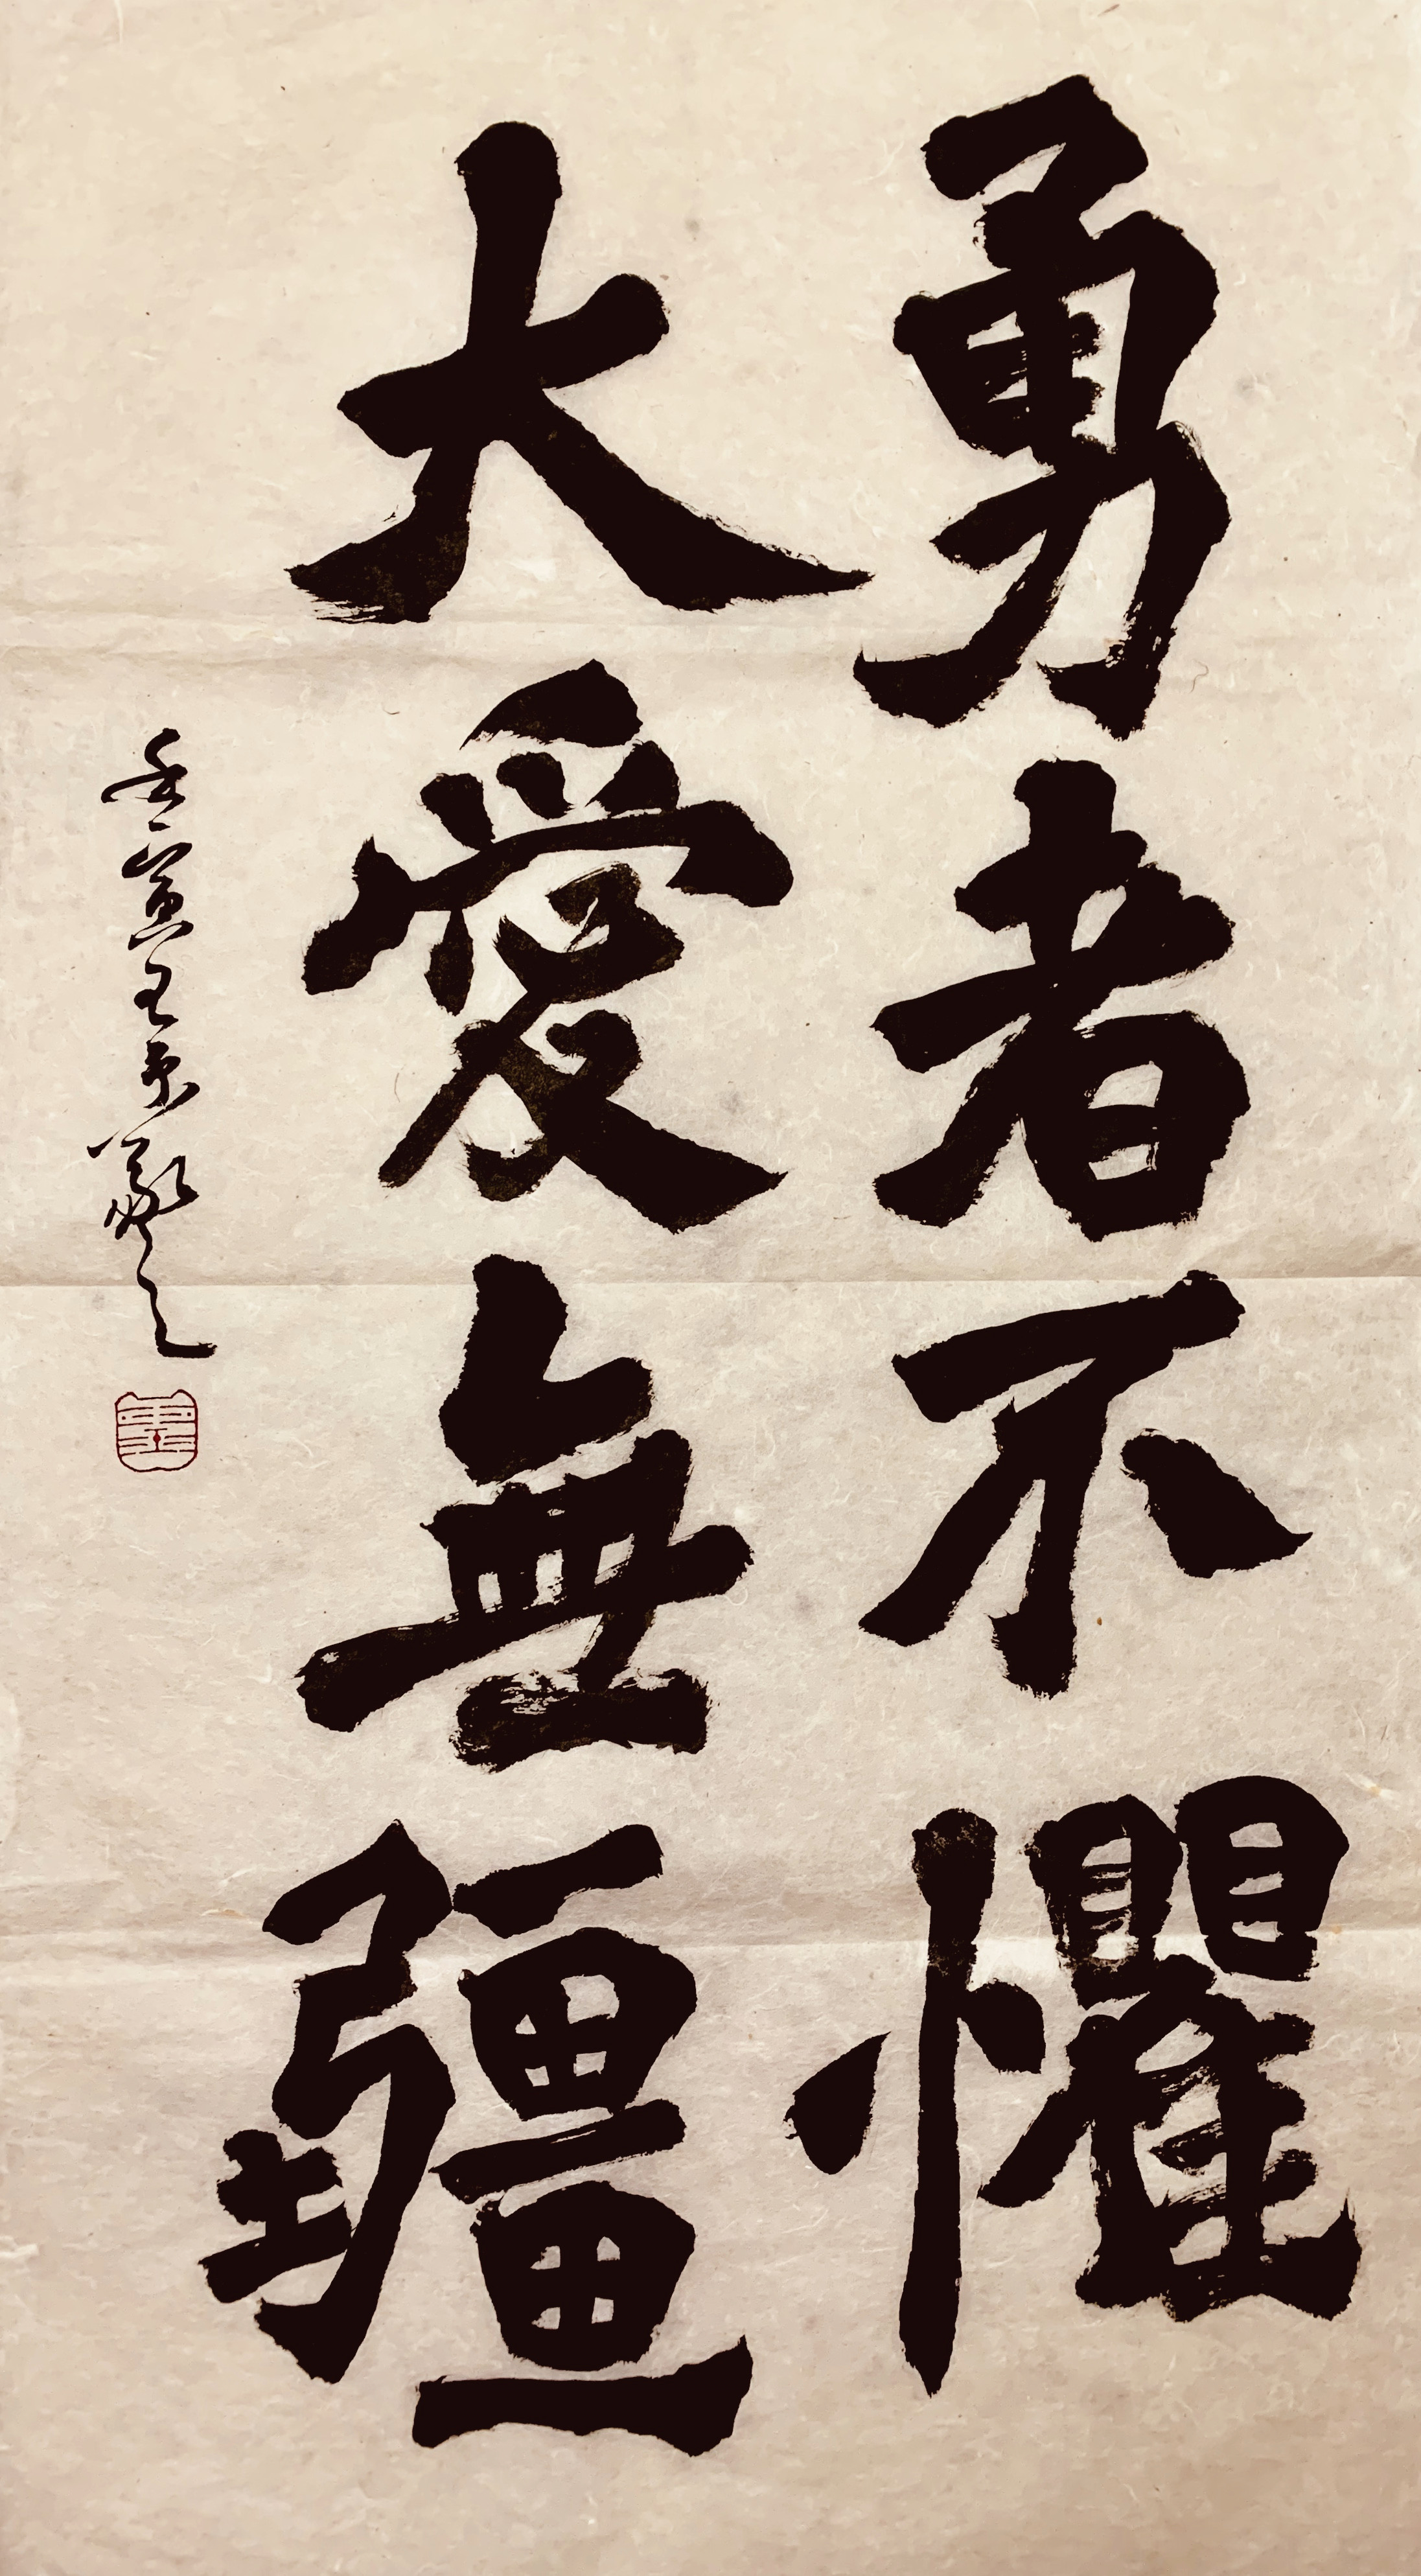 勇者不懼
大愛無疆
壬寅王京